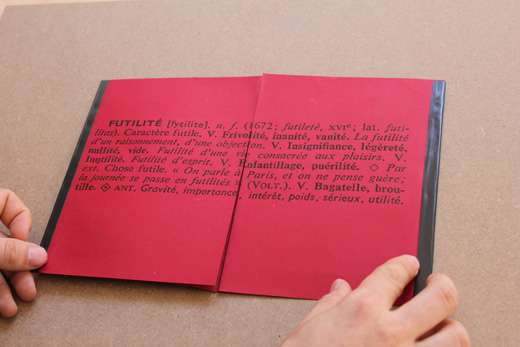 FUTILITÉ [fytilite]. n. f. (1672; futileté, XVIe; lat. futi-
litas). Caractère futile. V. Frivolité, inanité, vanité. La futilité
d'un raisonnement, d'une objection. V. Insignifiance, légèreté,
nullité, vide. Futilité d'une vie consacrée aux plaisirs. V.
Inutilité. Futilité d'esprit. V. Enfantillage, puérilité. ◇ Par
ext. Chose futile. « On parle à Paris, et on ne pense guère;
la journée se passe en futilités » (VOLT.). V. Bagatelle, brou-
tille. ◈ ANT. Gravité, importance, intérêt, poids, sérieux, utilité.